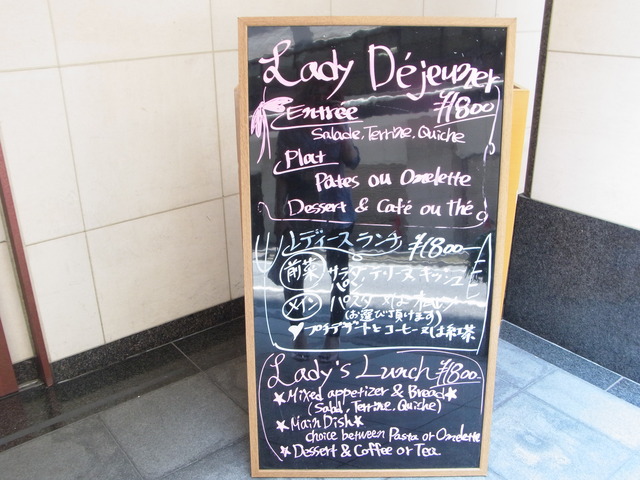 Lady Déjeuner
Entrée ¥1800
Salade, Terrine, Quiche
Plat
Pâtes ou Omelette
Dessert & Café ou thé
レディースランチ ¥1800
前菜 サラダ、テリーヌ、キッシュ
パン
メイン パスタ 又は オムレツ
(お選び頂けます)
♥プチデザートとコーヒー又は紅茶
Lady's Lunch ¥1800
★Mixed appetizer & Bread★
(Salad, Terrine, Quiche)
★Main Dish★
choice between Pasta or Omelette
★Dessert & Coffee or Tea